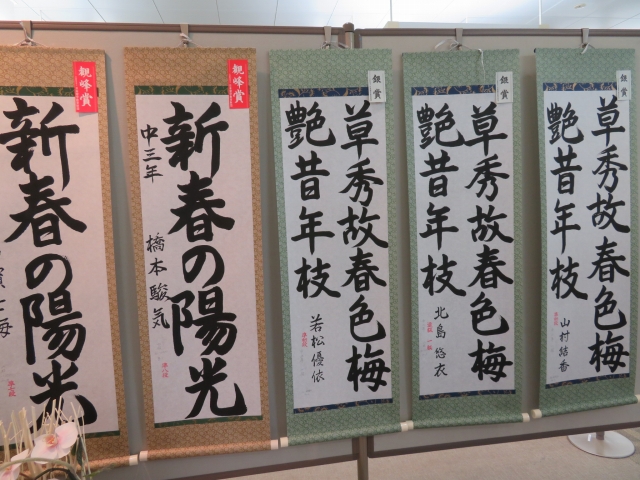 観峰賞
新春の陽光
観峰賞
新春の陽光
中三年
橋本駿気
銀賞
草秀故春色梅
艶昔年枝
若松優依
銀賞
草秀故春色梅
艶昔年枝
北島悠衣
銀賞
草秀故春色梅
艶昔年枝
山村結香